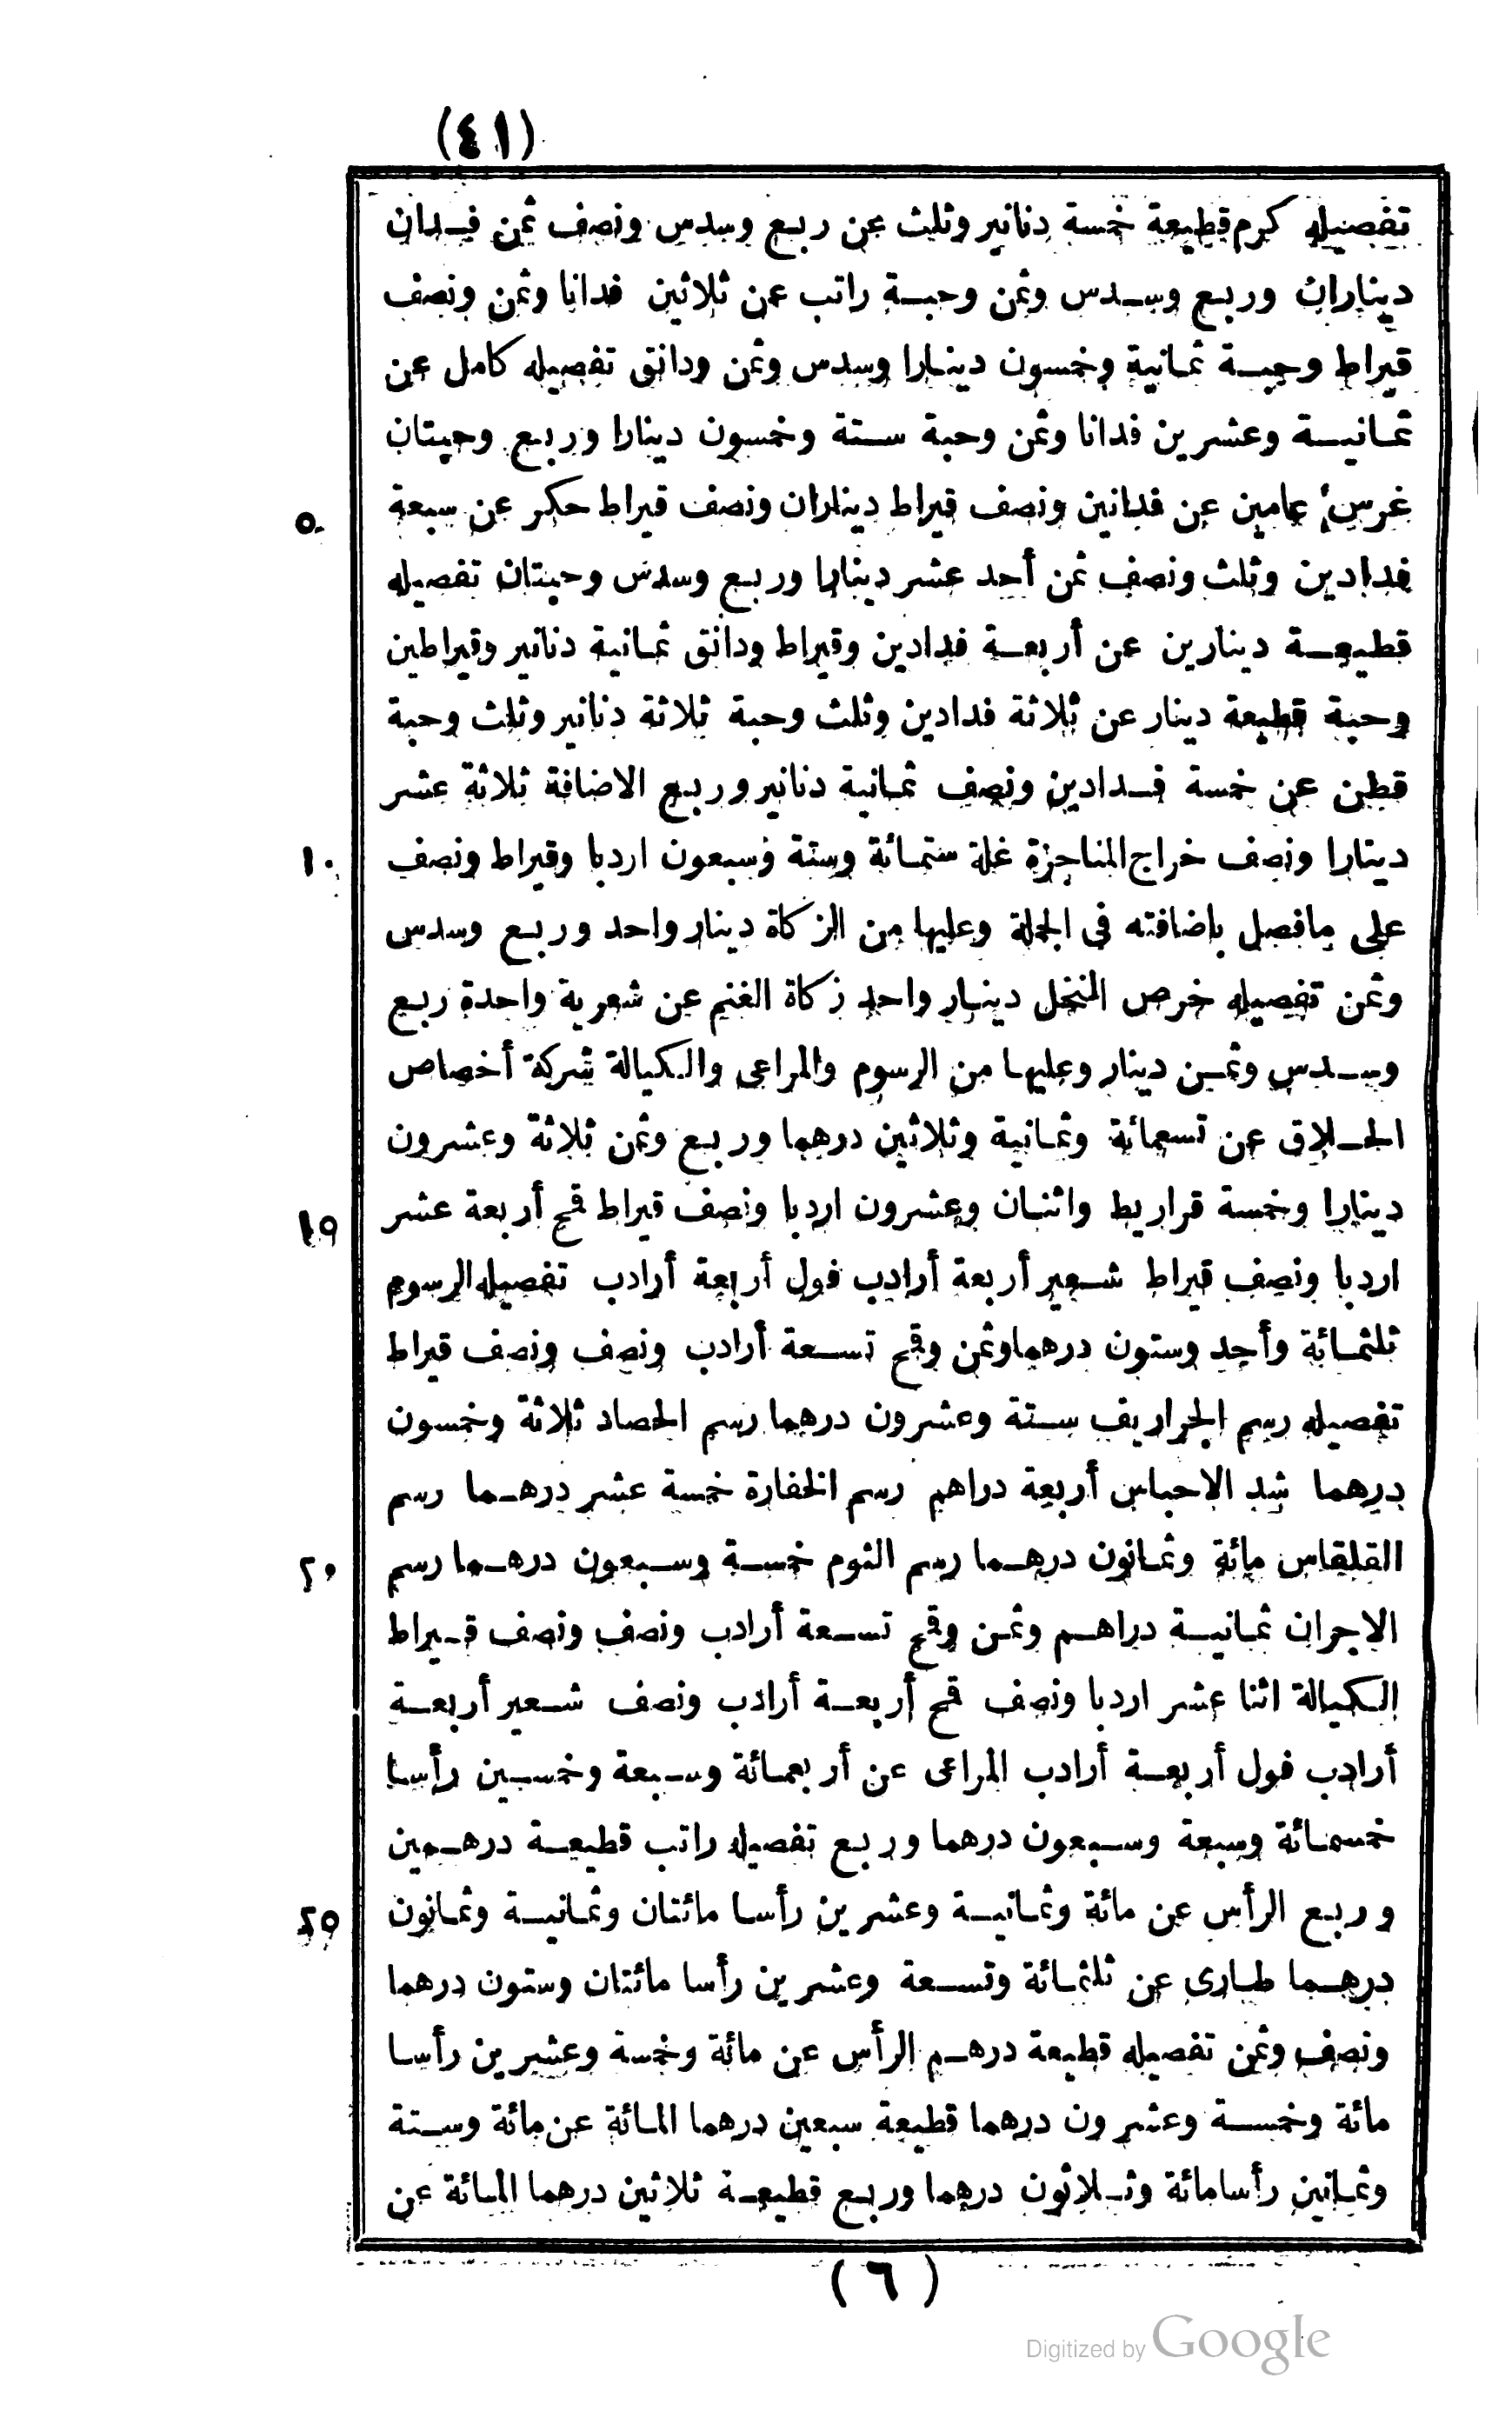 (٤١)
تفصيله كرم قطيعة خمسة دنانير وثلث عن ربع وسدس ونصف ثمن فدان
ديناران وربع وسدس وثمن وحبة راتب عن ثلاثين فدانا وثمن ونصف
قيراط وحبة ثمانية وخمسون دينارا وسدس وثمن ودانق تفصيله كامل عن
ثمانية وعشرين فدانا وثمن وحبة ستة وخمسون دينارا وربع وحبتان
غرس عامين عن فدانين ونصف قيراط ديناران ونصف قيراط حكر عن سبعة
٥
فدادين وثلث ونصف ثمن أحد عشر دينارا وربع وسدس وحبتان تفصيله
قطيعة دينارين عن أربعة فدادين وقيراط ودانق ثمانية دنانير وقيراطين
وحبة قطيعة دينار عن ثلاثة فدادين وثلث وحبة ثلاثة دنانير وثلث وحبة
قطن عن خمسة فدادين ونصف ثمانية دنانير وربع الاضافة ثلاثة عشر
دينارا ونصف خراج المناجزة غلة ستمائة وستة وسبعون اردبا وقيراط ونصف
١٠
على مافصل باضافته فى الجملة وعليها من الزكاة دينار واحد وربع وسدس
وثمن تفصيله خرص المنخل دينار واحد زكاة الغنم عن شعرية واحدة ربع
وسدس وثمن دينار وعليها من الرسوم والمراعى والكيالة شركة أخصاص
الحلاق عن تسعمائة وثمانية وثلاثين درهما وربع وثمن ثلاثة وعشرون
دينارا وخمسة قراريط واثنان وعشرون اردبا ونصف قيراط قمح أربعة عشر
١٥
اردبا ونصف قيراط شعير أربعة أرادب فول أربعة أرادب تفصيله الرسوم
ثلثمائة وأحد وستون درهما وثمن وقمح تسعة أرادب ونصف ونصف قيراط
تفصيله رسم الجراريف ستة وعشرون درهما رسم الحصاد ثلاثة وخمسون
درهما شد الاحباس أربعة دراهم رسم الخفارة خمسة عشر درهما رسم
القلقاس مائة وثمانون درهما رسم الثوم خمسة وسبعون درهما رسم
٢٠
الاجران ثمانية دراهم وثمن وقمح تسعة أرادب ونصف ونصف قيراط
الكيالة اثنا عشر اردبا ونصف قمح أربعة أرادب ونصف شعير أربعة
أرادب فول أربعة أرادب المراعى عن أربعمائة وسبعة وخمسين رأسا
خمسمائة وسبعة وسبعون درهما وربع تفصيله راتب قطيعة درهمين
وربع الرأس عن مائة وثمانية وعشرين رأسا مائتان وثمانية وثمانون
٢٥
درهما طارى عن ثلثمائة وتسعة وعشرين رأسا مائتان وستون درهما
ونصف وثمن تفصيله قطيعة درهم الرأس عن مائة وخمسة وعشرين رأسا
مائة وخمسة وعشرون درهما قطيعة سبعين درهما المائة عن مائة وستة
وثمانين رأسا مائة وثلاثون درهما وربع قطيعة ثلاثين درهما المائة عن
(٦)
Digitized by Google